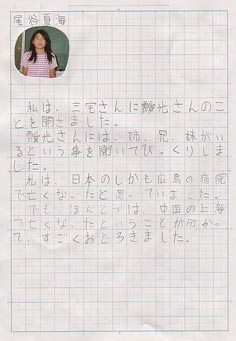 尾谷夏海
私は、三宅さんに醫光さんのこ
とを聞きました。
醫光さんには、姉、兄、妹がい
るという事を聞いてびっくりしま
した。
私は、日本のしかも広島の病院
で亡くなったと思っていました。
でも、ほんとうは、中国の上海
で亡くなったということが分かっ
て、すごくおどろきました。